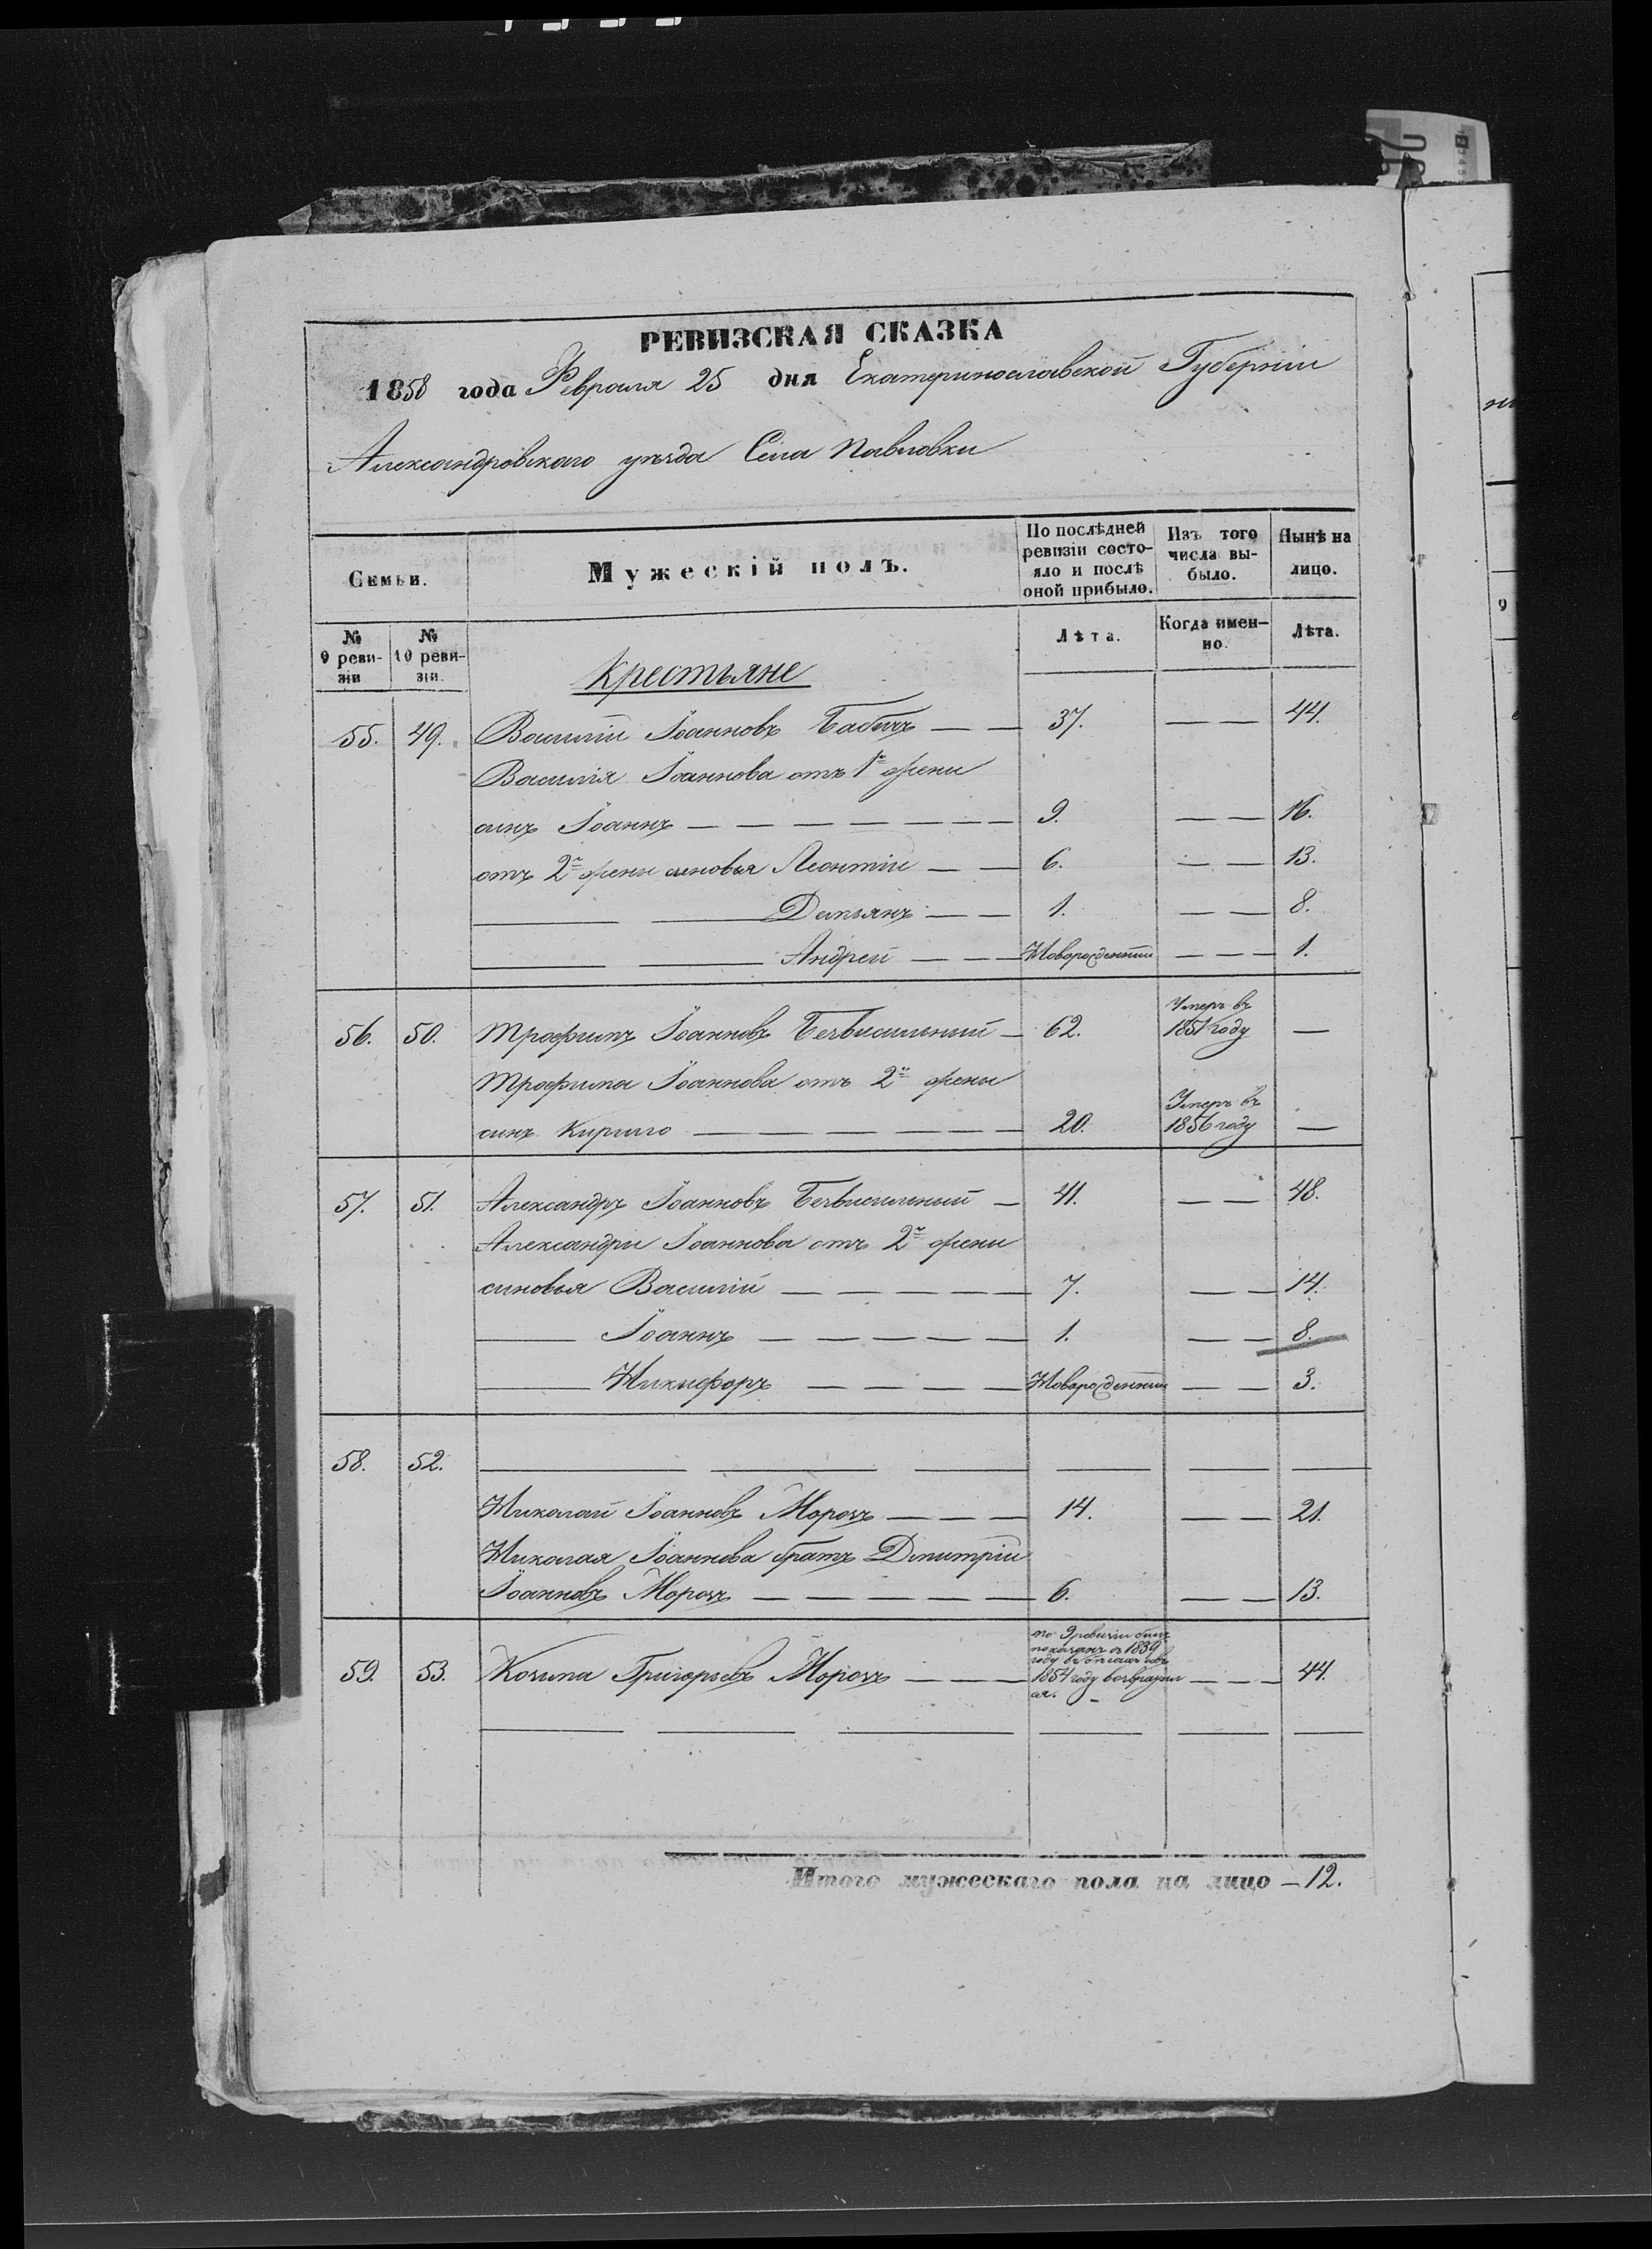 РЕВИЗСКАЯ СКАЗКА
1858 года Февраля 25 дня Екатеринославской Губерніи
Александровскаго уѣзда Села Павловки
Семьи.
Мужескій полъ.
По послѣдней ревизіи состояло и послѣ оной прибыло.
Изъ того числа выбыло.
Нынѣ на лицо.
№ 9 ревизіи
№ 10 ревизіи.
Лѣта.
Когда именно.
Лѣта.
Крестьяне
55. 49. Василій Іоанновъ Бабичъ — — 37. — — 44.
Василія Іоаннова отъ 1й жены
сынъ Іоаннъ — — — — — — — 9. — — 16.
отъ 2й жены сыновья Леонтій — — 6. — — 13.
— — Демьянъ — — 1. — — 8.
— — Андрей — — — Новорожденный — — — 1.
56. 50. Трофимъ Іоанновъ Безвисильный — 62. Умеръ въ 1851 году —
Трофима Іоаннова отъ 2й жены
сынъ Кирило — — — — — — 20. Умеръ въ 1856 году —
57. 51. Александръ Іоанновъ Безвисильный — 41. — — 48.
Александры Іоаннова отъ 2й жены
сыновья Василій — — — — — 7. — — 14.
— Іоаннъ — — — — — 1. — — 8.
— Никифоръ — — — — Новорожденный — — 3.
58. 52. — — — — — —
Николай Іоанновъ Морозъ — — — 14. — — 21.
Николая Іоаннова братъ Дмитрій
Іоанновъ Морозъ — — — — — 6. — — 13.
59. 53. Козьма Григорьевъ Морозъ — — — по 9 ревизіи былъ
показанъ съ 1839
году въ бѣгахъ
1854 году возвратил
ся. — — — — 44.
— — — — — —
Итого мужескаго пола на лицо — 12.